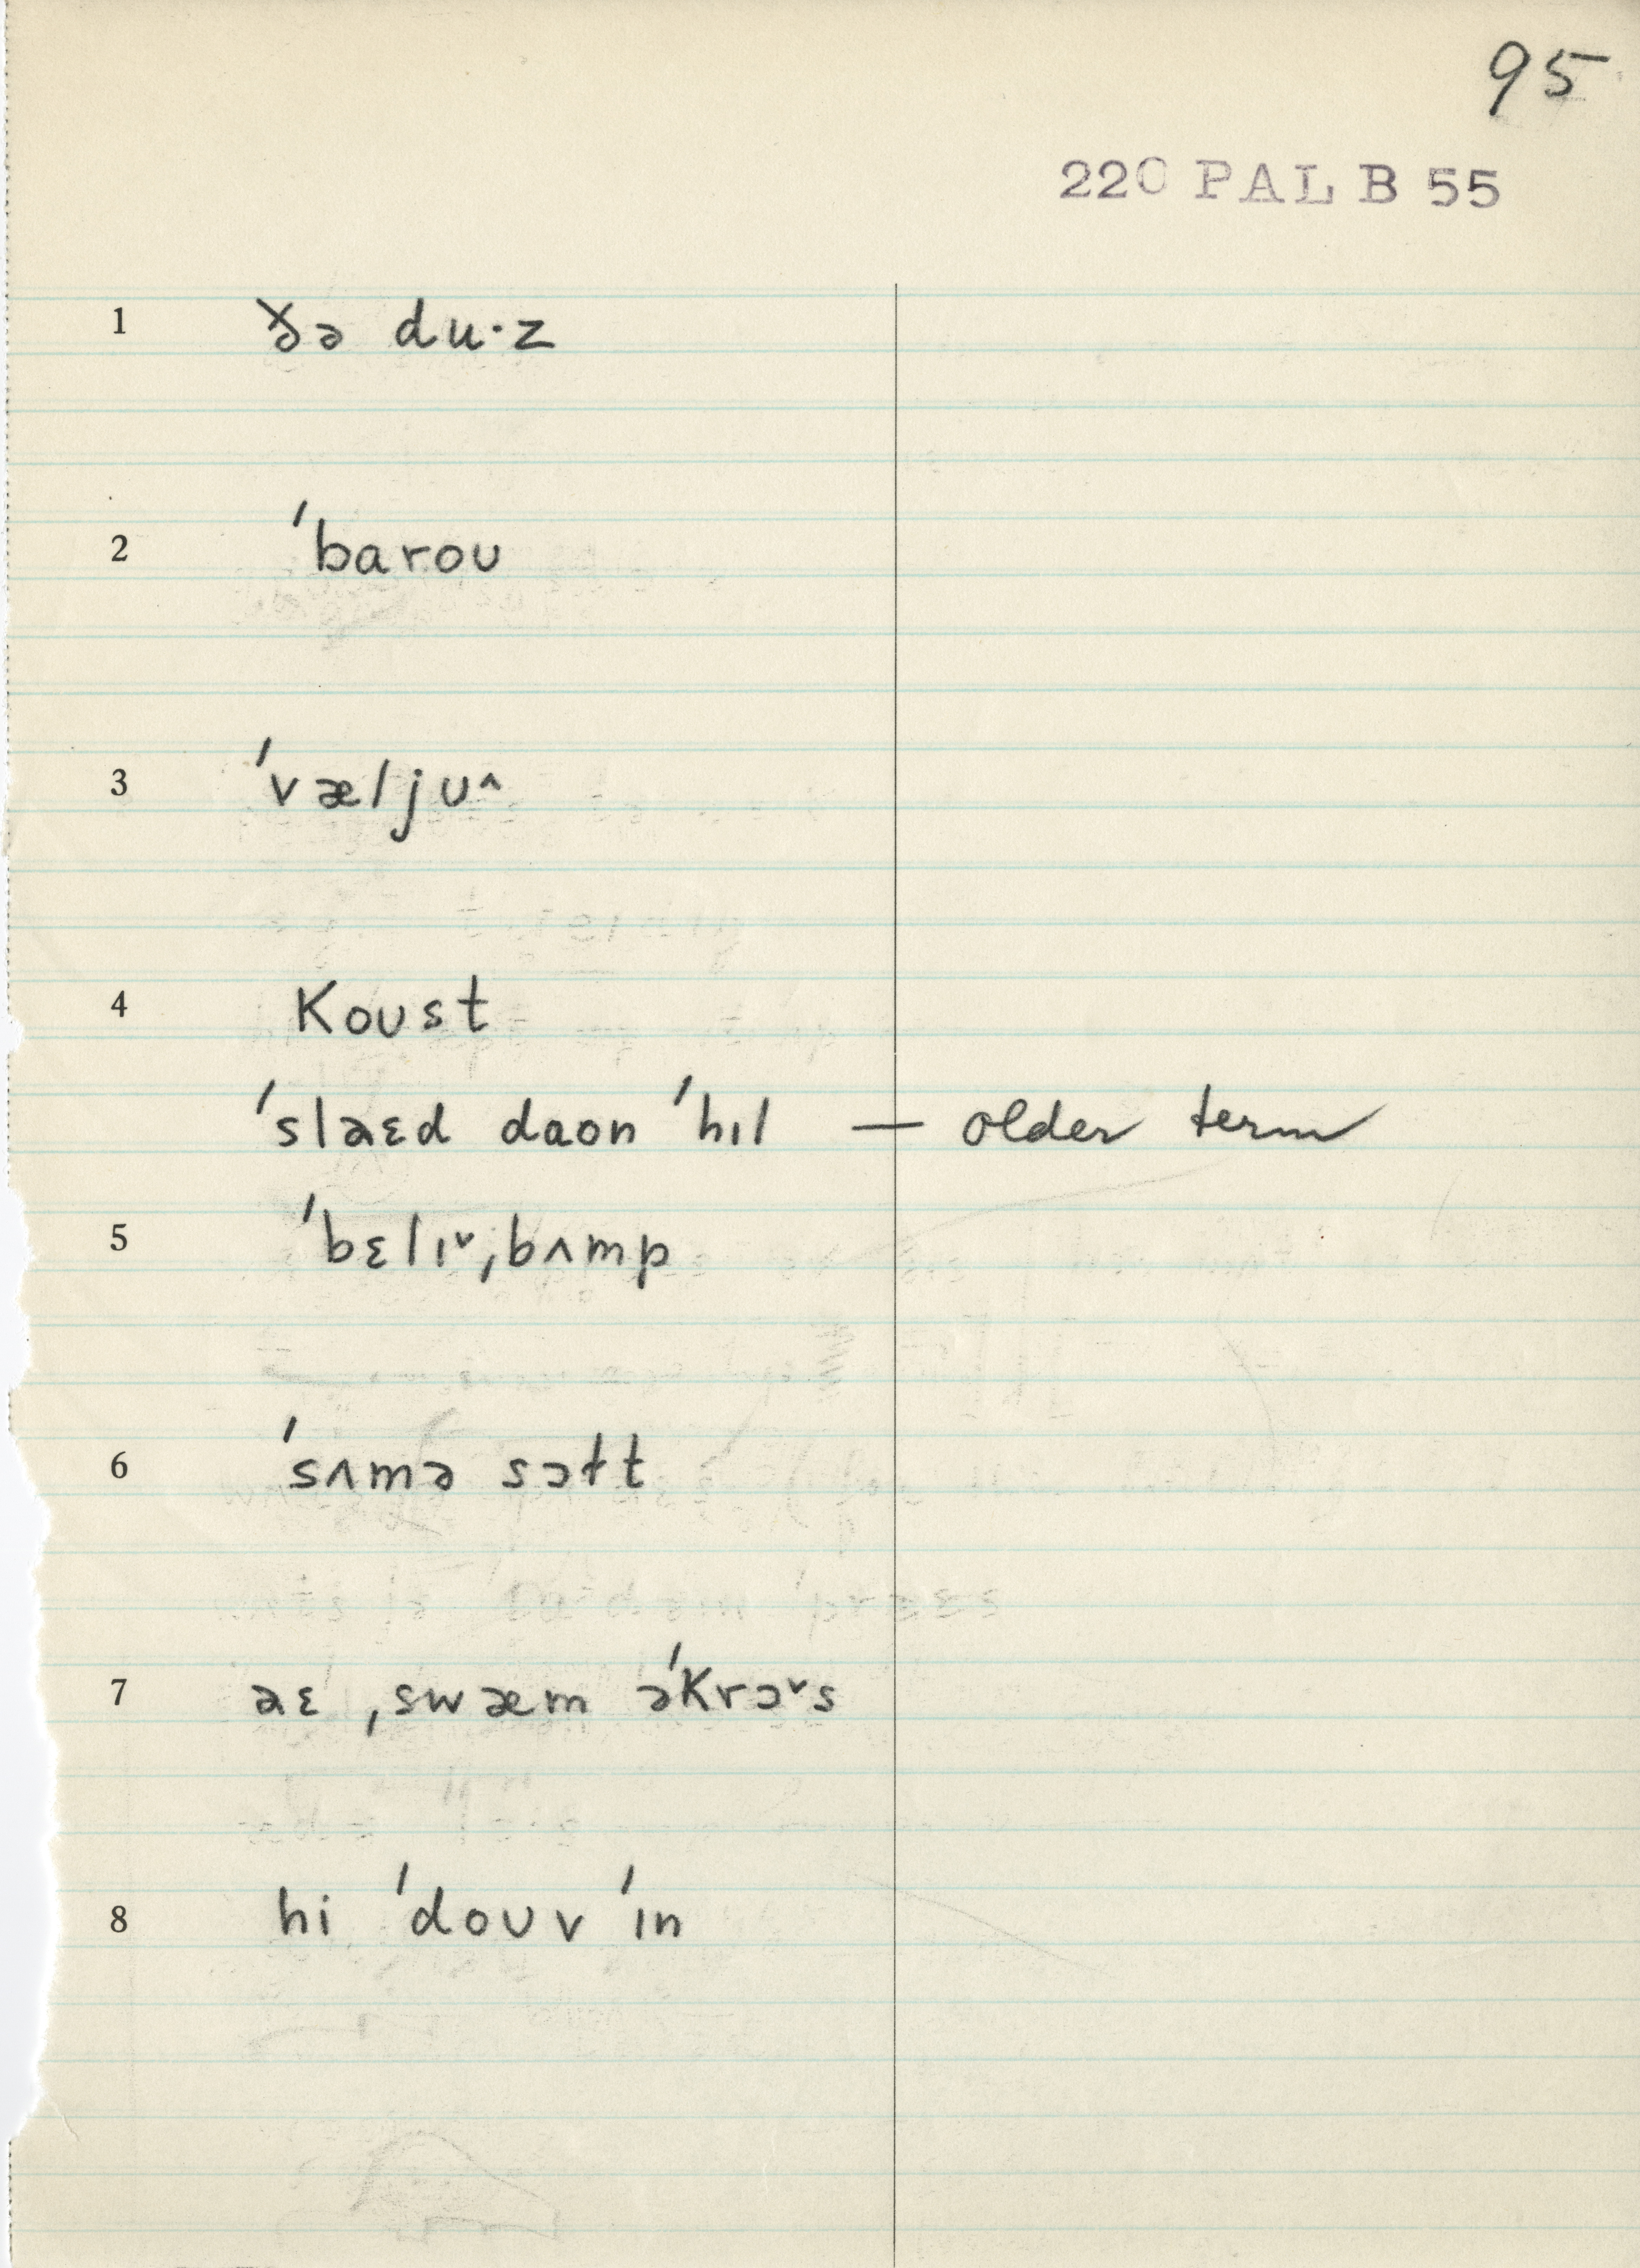 95
220 PAL B 55
1 ðə du·z
2 ˈbaroʊ
3 ˈvæljʊ^
4 Koʊst
ˈslaɛd daʊn ˈhɪl — older term
5 ˈbɛlɪˇˌbʌmp
6 ˈsʌmə sɔɫt
7 aɛ ˌswæm əˈKrɔˇs
8 hi ˈdoʊv ˈɪn